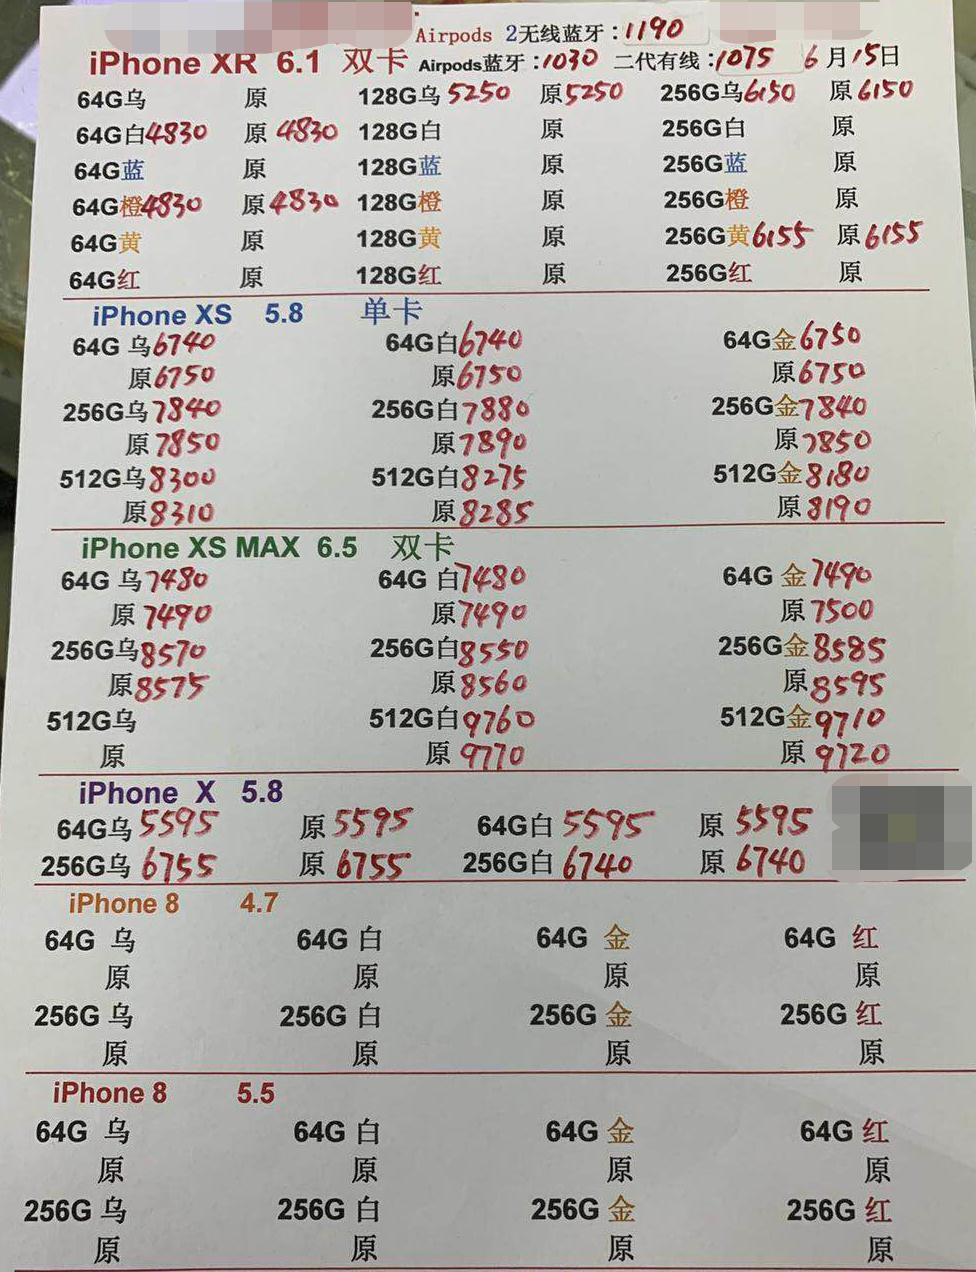 Airpods 2无线蓝牙:1190
iPhone XR 6.1 双卡 Airpods蓝牙:1030 二代有线:1075 6月15日
64G乌 原 128G乌5250 原5250 256G乌6150 原6150
64G白4830 原4830 128G白 原 256G白 原
64G蓝 原 128G蓝 原 256G蓝 原
64G橙4830 原4830 128G橙 原 256G橙 原
64G黄 原 128G黄 原 256G黄6155 原6155
64G红 原 128G红 原 256G红 原
iPhone XS 5.8 单卡
64G 乌6740 64G白6740 64G金6750
原6750 原6750 原6750
256G乌7840 256G白7880 256G金7840
原7850 原7890 原7850
512G乌8300 512G白8275 512G金8180
原8310 原8285 原8190
iPhone XS MAX 6.5 双卡
64G 乌7480 64G 白7480 64G 金7490
原7490 原7490 原7500
256G乌8570 256G白8550 256G金8585
原8575 原8560 原8595
512G乌 512G白9760 512G金9710
原 原9770 原9720
iPhone X 5.8
64G乌5595 原5595 64G白5595 原5595
256G乌6755 原6755 256G白6740 原6740
iPhone 8 4.7
64G 乌 64G 白 64G 金 64G 红
原 原 原 原
256G 乌 256G 白 256G 金 256G 红
原 原 原 原
iPhone 8 5.5
64G 乌 64G 白 64G 金 64G 红
原 原 原 原
256G 乌 256G 白 256G 金 256G 红
原 原 原 原